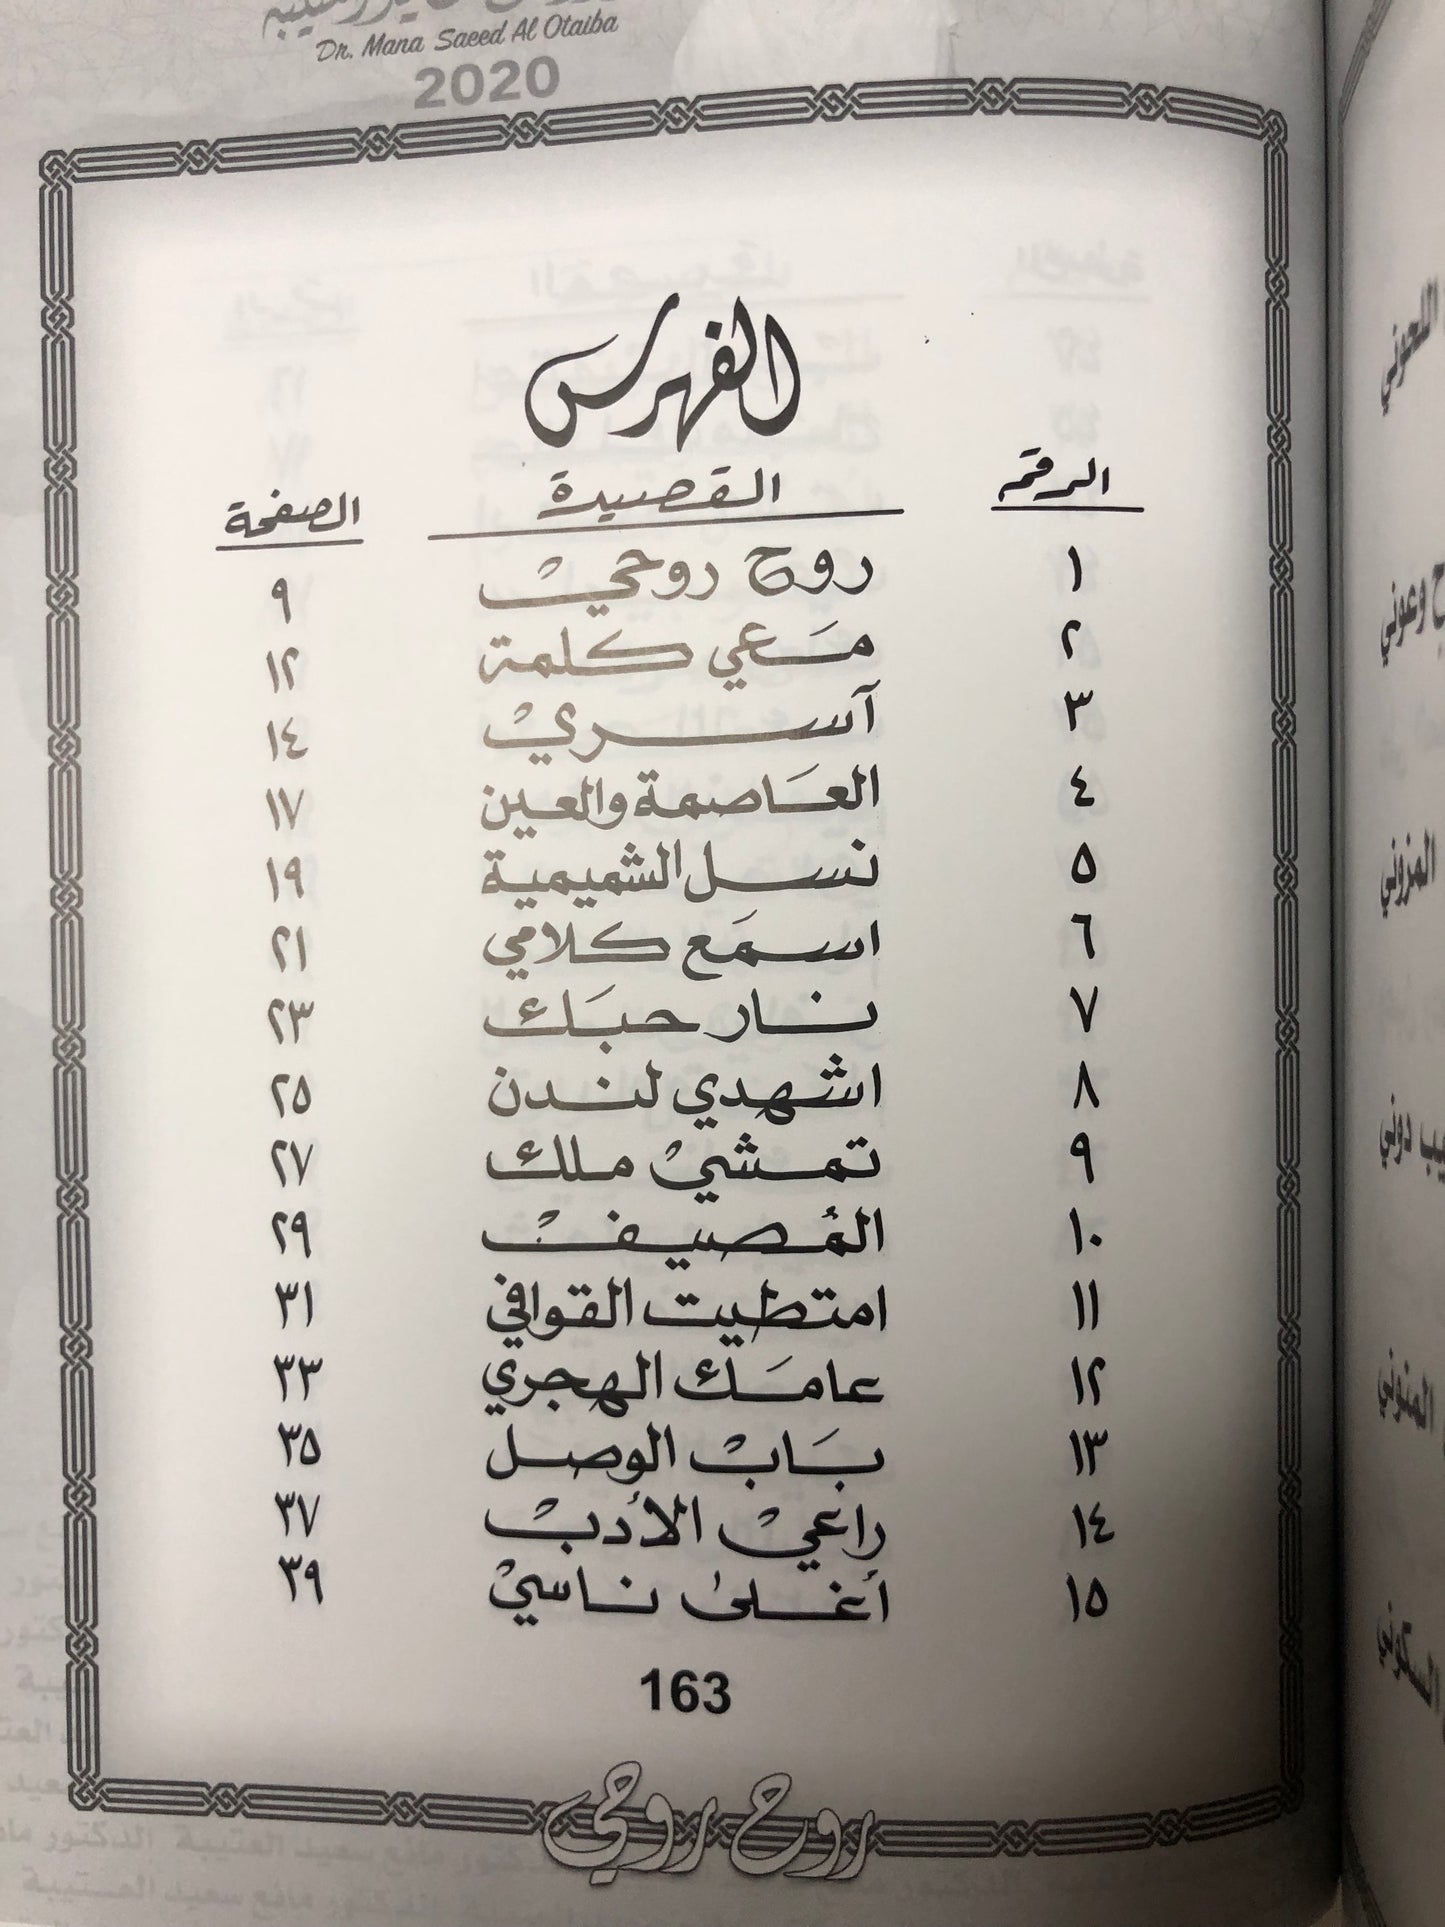 Dr. Mana Saeed Al Otaiba
2020
الفهرس
الرقم القصيدة الصفحة
١ روح روحي ٩
٢ معي كلمة ١٢
٣ آسري ١٤
٤ العاصمة والعين ١٧
٥ نسل الشميمية ١٩
٦ اسمع كلامي ٢١
٧ نار حبك ٢٣
٨ اشهدي لندن ٢٥
٩ تمشي ملك ٢٧
١٠ المُصيف ٢٩
١١ امتطيت القوافي ٣١
١٢ عامك الهجري ٣٣
١٣ باب الوصل ٣٥
١٤ راعي الأدب ٣٧
١٥ أغلى ناسي ٣٩
163
روح روحي
اللحوني
وعوني
المزوني
دوني
المتوني
السكوني